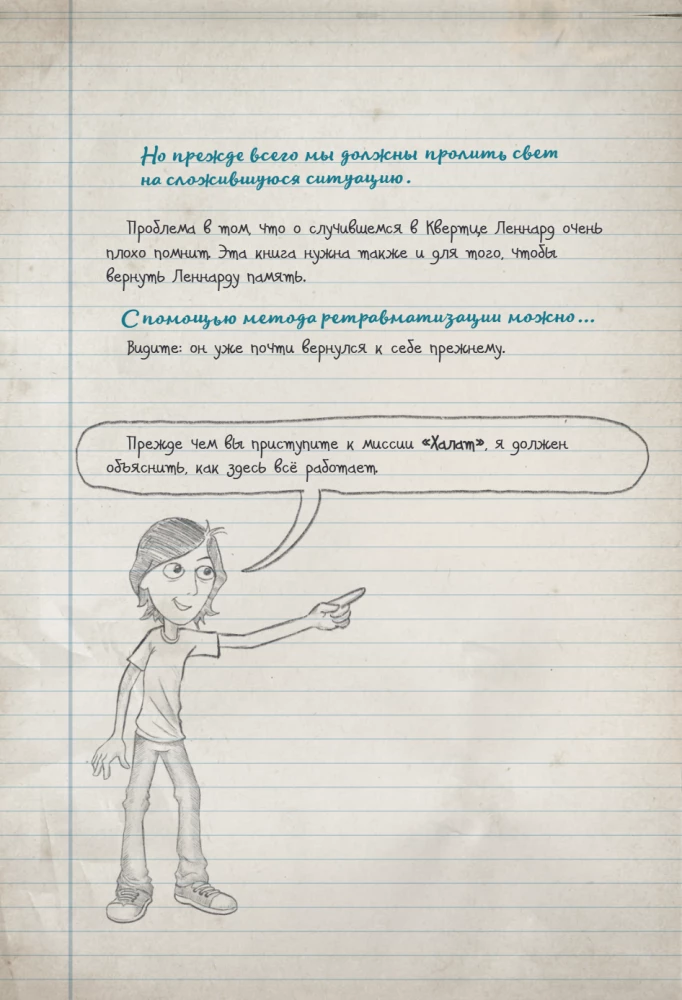 Но прежде всего мы должны пролить свет
на сложившуюся ситуацию.
Проблема в том, что о случившемся в Квертце Леннард очень
плохо помнит. Эта книга нужна также и для того, чтобы
вернуть Леннарду память.
С помощью метода ретравматизации можно...
Видите: он уже почти вернулся к себе прежнему.
Прежде чем вы приступите к миссии «Халат», я должен
объяснить, как здесь всё работает.